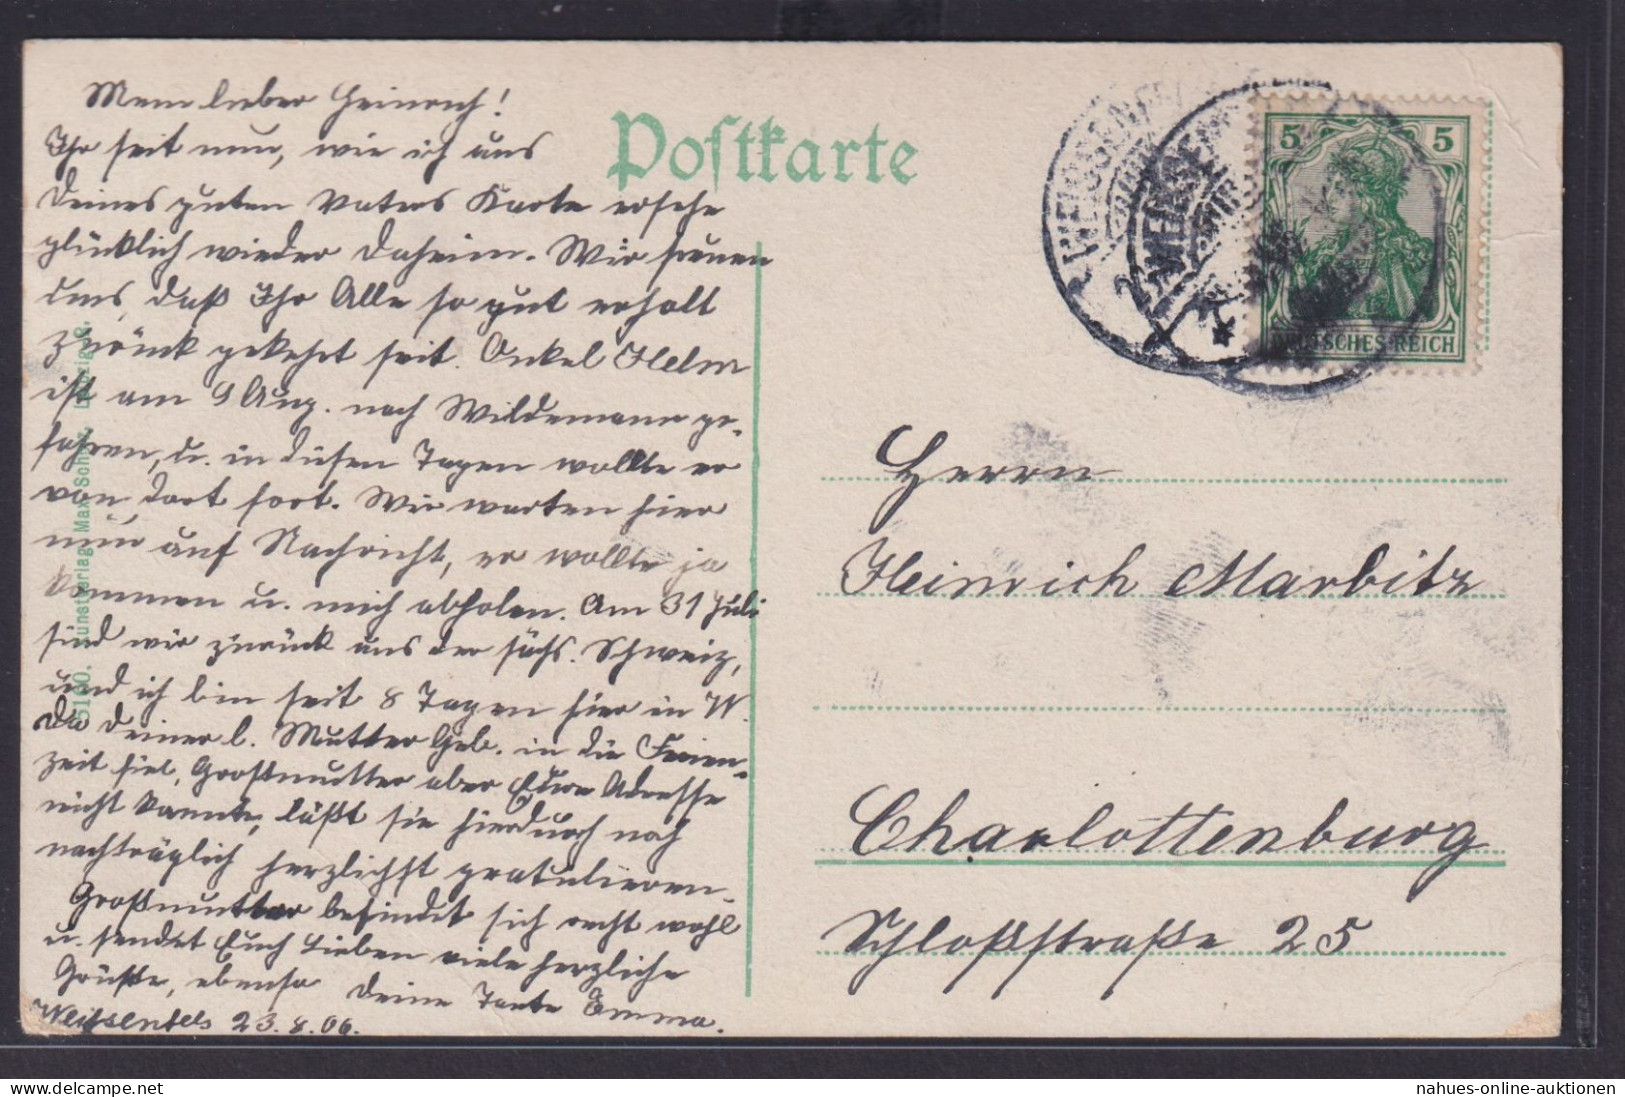 Mein lieber Heinrich!
Ihr seit nun, wie ich aus
Deines guten Vaters Karte ersehe
glücklich wieder daheim. Wir freuen
uns, daß Ihr Alle so gut erholt
zurück gekehrt seit. Onkel Helm
ist am 9 Aug. nach Wildemann ge-
fahren, u. in diesen Tagen wollte er
von dort fort. Wir warten hier
nun auf Nachricht, er wollte ja
kommen u. mich abholen. Am 31 Juli
sind wir zurück aus der sächs. Schweiz,
und ich bin seit 8 Tagen hier in W.
Da deiner l. Mutter Geb. in die Ferien-
zeit fiel, Großmutter aber Eure Adresse
nicht kannte, läßt sie hierdurch noch
nachträglich herzlichst gratulieren.
Großmutter befindet sich recht wohl
u. sendet Euch Lieben viele herzliche
Grüße, ebenso deine Tante Emma.
Weißenfels 23.8.06.
Postkarte
5 5
DEUTSCHES REICH
WEISSENF
Herrn
Heinrich Marbitz
Charlottenburg
Schloßstraße 25
nahues-online-auktionen